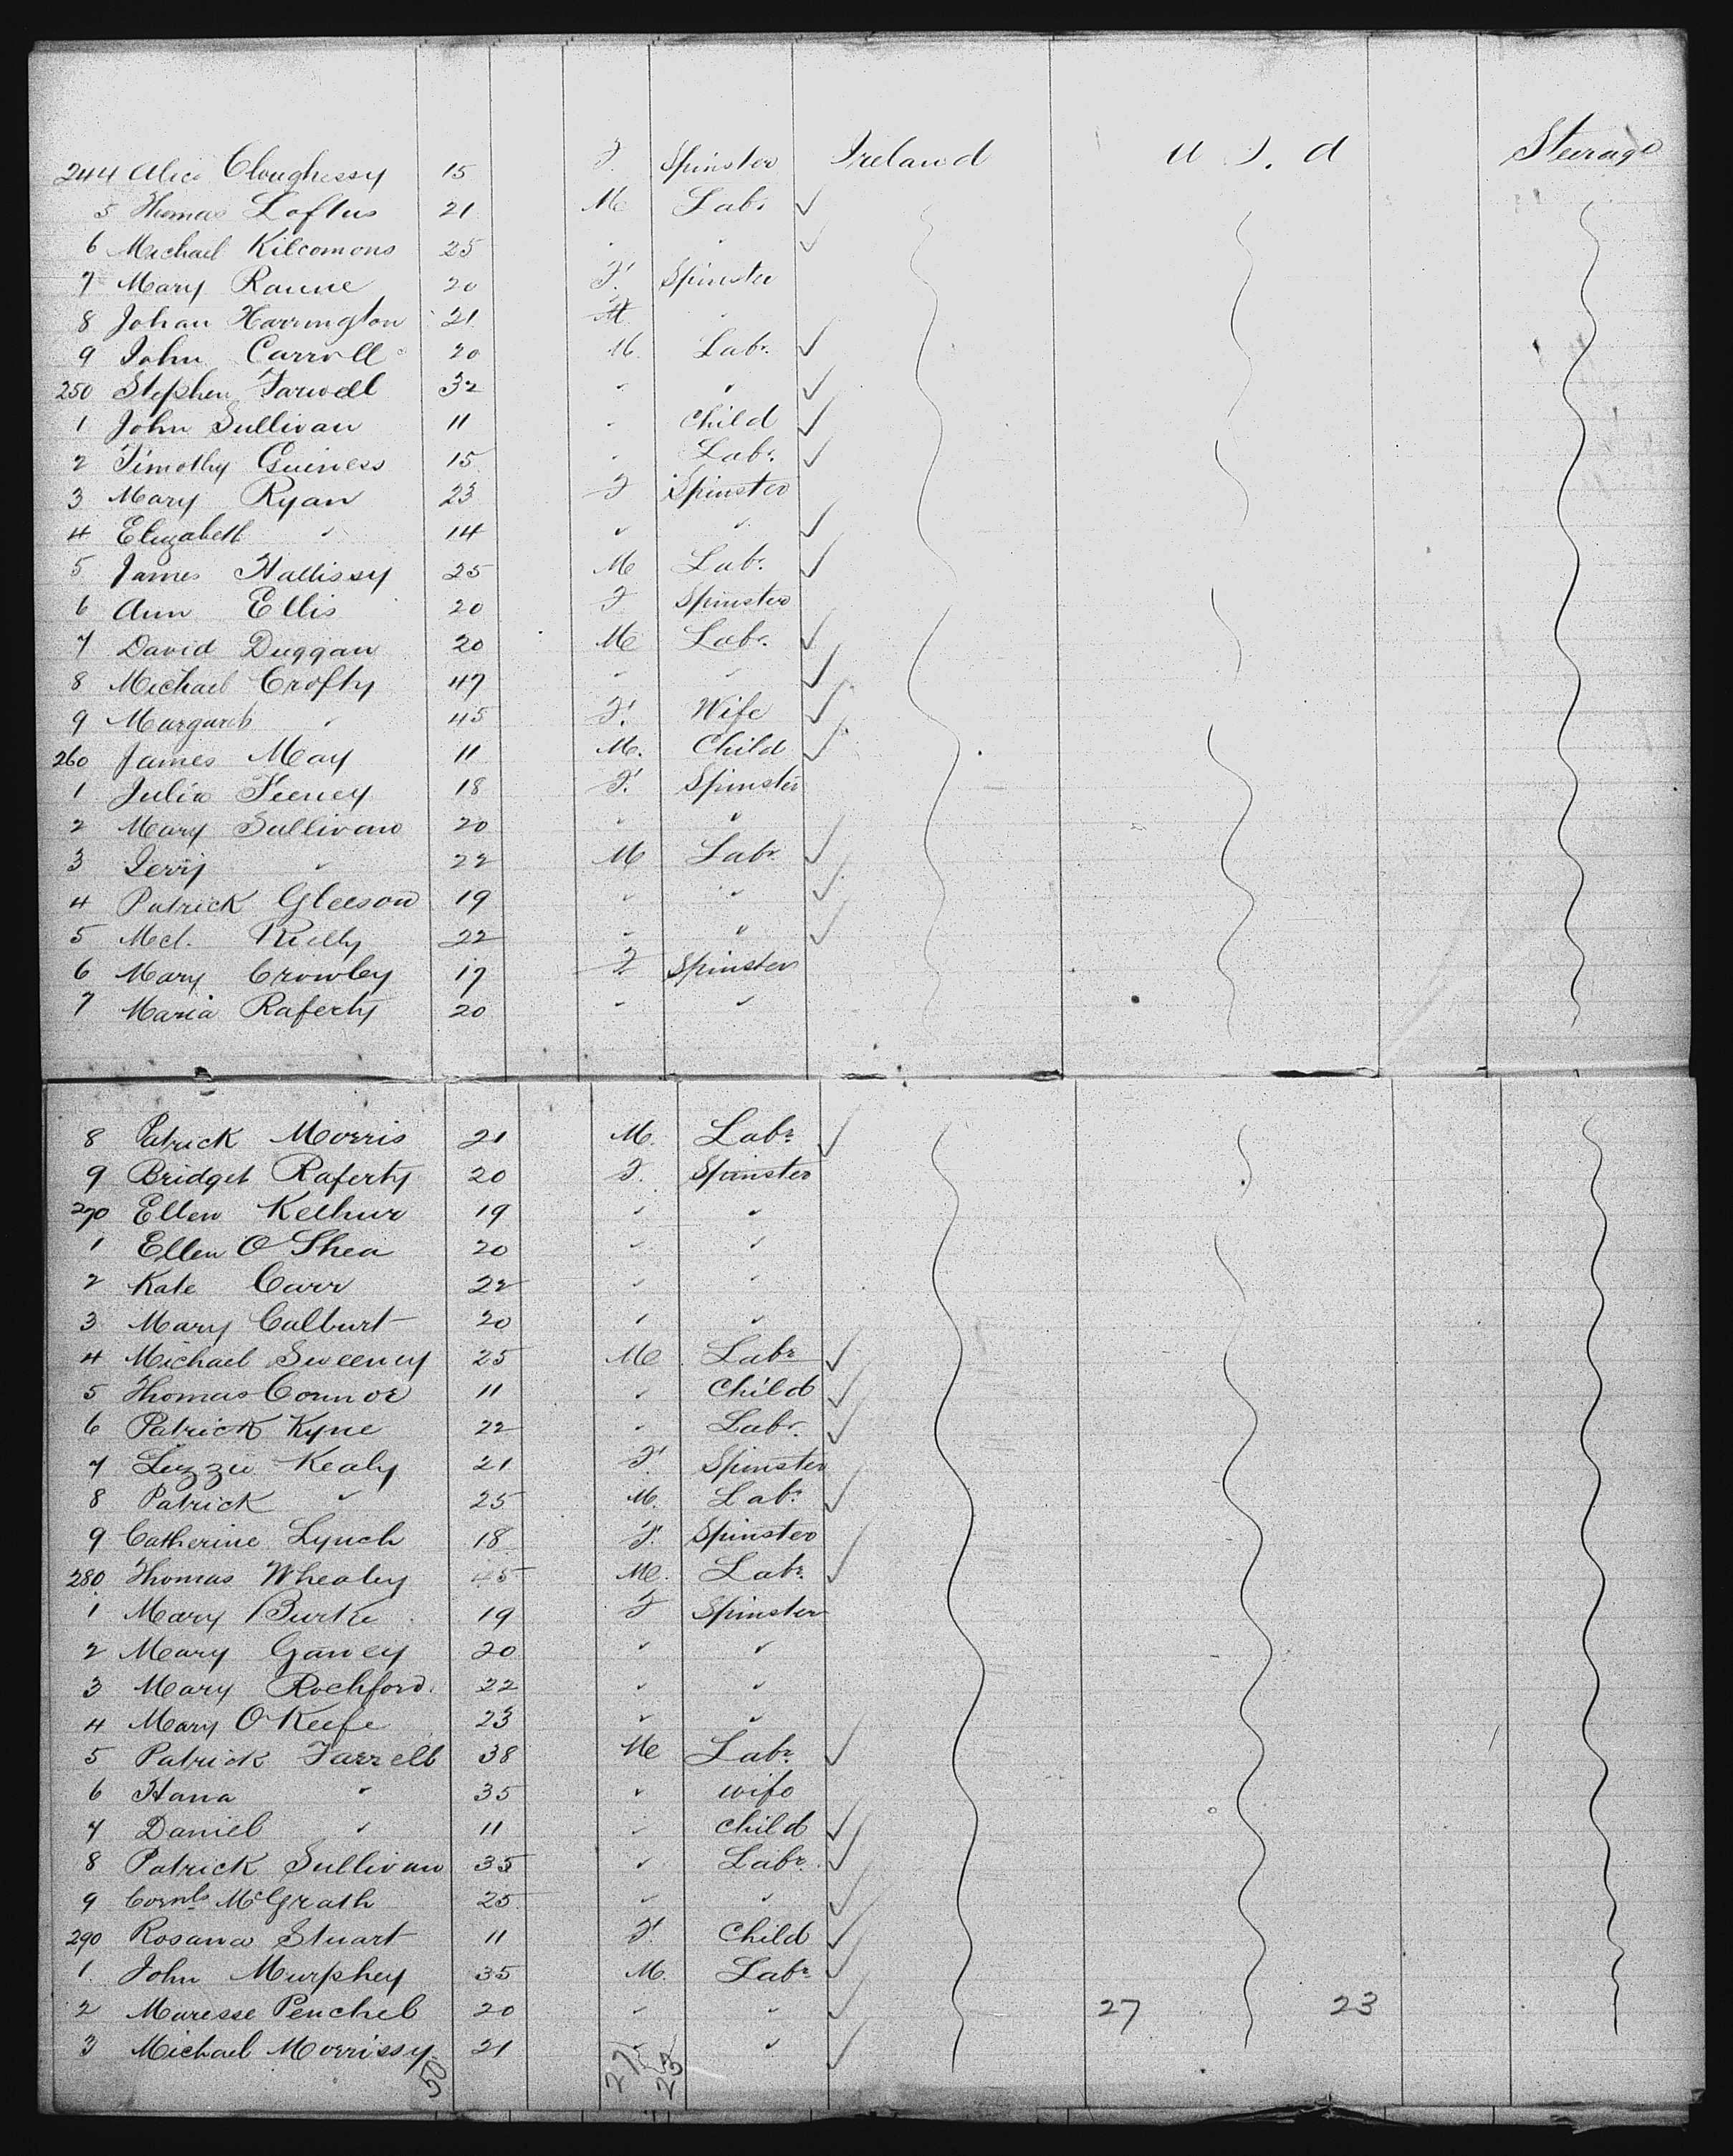 244 Alice Cloughessy 15 F. Spinster Ireland U S. A Steerage
5 Thomas Loftus 21 M Labr ✓
6 Michael Kilcomons 25 " " ✓
7 Mary Ranne 20 F. Spinster
8 Johan Harrington 21 "
9 John Carroll 20 M. Labr. ✓
250 Stephen Farwell 32 " " ✓
1 John Sullivan 11 " Child ✓
2 Timothy Guiness 15 " Labr. ✓
3 Mary Ryan 23 F Spinster
4 Elizabeth " 14 " " ✓
5 James Hallissy 25 M Labr. ✓
6 Ann Ellis 20 F Spinster
7 David Duggan 20 M Labr. ✓
8 Michael Crofty 47 " " ✓
9 Margaret " 45 F. Wife ✓
260 James May 11 M. Child ✓
1 Julia Feeney 18 F. Spinster
2 Mary Sullivan 20 " "
3 Jerry " 22 M Labr. ✓
4 Patrick Gleeson 19 " " ✓
5 Mcl. Rielly 22 " " ✓
6 Mary Crowley 17 F. Spinster
7 Maria Raferty 20 " "
8 Patrick Morris 21 M. Labr. ✓
9 Bridget Raferty 20 F. Spinster
270 Ellen 19 " "
1 Ellen O Shea 20 " "
2 Kate Carr 22 " "
3 Mary Calburt 20 " "
4 Michael Sweeney 25 M Labr ✓
5 Thomas Connor 11 " Child ✓
6 Patrick Kyne 22 " Labr. ✓
7 Lizzie Kealy 21 F. Spinster
8 Patrick " 25 M. Labr. ✓
9 Catherine Lynch 18 F. Spinster
280 Thomas Whealey 45 M. Labr. ✓
1 Mary Burke 19 F Spinster
2 Mary Gavey 20 " "
3 Mary Rochford. 22 " "
4 Mary O Keefe 23 " "
5 Patrick Farrell 38 M Labr. ✓
6 Hana " 35 " wife
7 Daniel " 11 " child ✓
8 Patrick Sullivan 35 " Labr. ✓
9 Cornls McGrath 25 " " ✓
290 Rosana Stuart 11 F Child ✓
1. John Murphey 35 M. Labr. ✓
2 Maresse Penchel 20 " " ✓ 27 23
3 Michael Morrissy 21 " " ✓
50 27 23